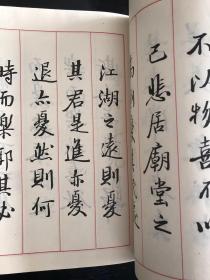 不以物喜不以
己悲居廟堂之
江湖之遠則憂
其君是進亦憂
退亦憂然則何
時而樂耶其必